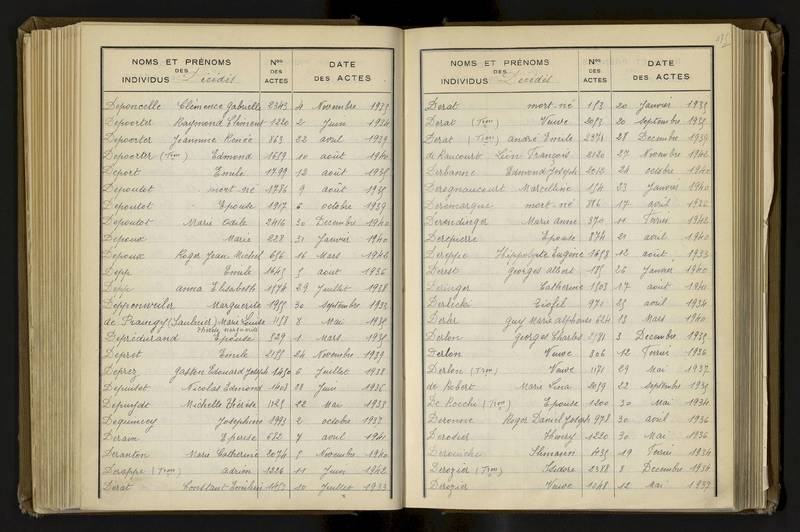 NOMS ET PRÉNOMS DES INDIVIDUS Décédés Nos DES ACTES DATE DES ACTES
Deponcelle Clémence Gabrielle 2343 4 Novembre 1935
Depoorter Raymond Clément 1220 2 Juin 1934
Depoorter Jeannine Renée 863 22 avril 1939
Depoorter (Tion) Edmond 1659 10 août 1940
Deport Emile 1799 12 août 1935
Depoutot mort-né 1786 9 août 1935
Depoutot Epouse 1917 6 octobre 1939
Depoutot Marie Odile 2416 30 Décembre 1940
Depoux Marie 228 31 Janvier 1940
Depoux Roger Jean Michel 656 16 Mars 1942
Depp Emile 1645 5 aout 1936
Depp anna Elisabeth 1574 29 Juillet 1938
Deppenweiler Marguerite 1955 30 septembre 1933
de Praingy (Saulnier) Marie Louise 1158 8 Mai 1935
Deprédurand Epouse 529 1 Mars 1935
Depret Emile 2155 24 Novembre 1939
Deprez Gaston Edouard Joseph 1450 6 Juillet 1938
Depuiset Nicolas Edmond 1403 28 Juin 1936
Depuydt Michelle Thérèse 1125 22 Mai 1933
Dequincey Joséphine 1993 2 octobre 1937
Deram Epouse 682 7 avril 1941
Deranton Marie Catherine 2074 5 Novembre 1940
Derappe (Tion) adrien 1226 11 Juin 1942
Derat Constant Emilien 1453 10 Juillet 1933
NOMS ET PRÉNOMS DES INDIVIDUS Décédés Nos DES ACTES DATE DES ACTES
Derat mort-né 153 20 Janvier 1935
Derat (Tion) Veuve 2053 20 septembre 1935
Derat (Tion) André Emile 2371 28 Décembre 1939
de Raucourt Léon François 2120 27 Novembre 1942
Derbanne Edmond Joseph 2012 24 octobre 1940
Deregnaucourt Marcelline 154 23 Janvier 1940
Deremarque mort-né 886 17 avril 1936
Derendinger Marie anne 370 11 Février 1942
Derepierre Epouse 874 21 avril 1940
Dereppe Hippolyte Eugène 1658 12 août 1933
Derest Georges Albert 185 26 Janvier 1940
Deringer Catherine 1503 17 août 1941
Derlecki Eiofil 971 25 avril 1934
Derler Guy Marie Alphonse 624 13 Mars 1940
Derlon Georges Charles 2581 3 Décembre 1935
Derlon Veuve 306 12 Février 1936
Derlon (Tion) Veuve 1171 29 Mai 1937
de Robert Marie Lina 2059 22 septembre 1935
De Rocchi (Tion) Epouse 1200 30 Mai 1934
Deronne Roger Daniel Joseph 978 30 avril 1936
Derosier Henry 1220 30 Mai 1936
435 19 Février 1934
Derozier (Tion) Isidore 2388 8 Décembre 1934
Derozier Veuve 1048 12 Mai 1937